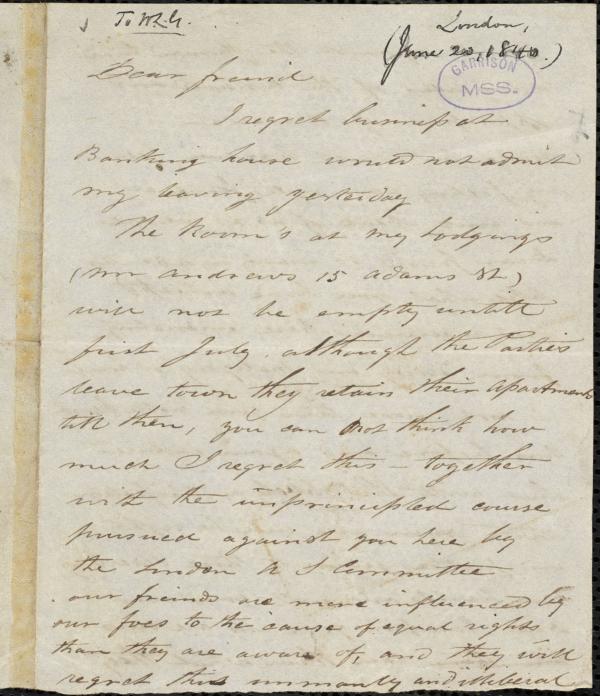 To W.L.G.
London,
(June 20, 1840.)
GARRISON
MSS.
Dear freind
I regret business at
Banking house would not admit
my leaving yesterday
The Room's at my Lodgings
(Mr Andrews 15 Adams St)
will not be empty untill
first July. although the Parties
leave town they retain their apartments
till then, you can not think how
much I regret this - together
with the unprincipled course
pursued against you here by
the London A S Committee
our freinds are more influenced by
our foes to the cause of equal rights
than they are aware of, and they will
regret this unmanly and illiberal